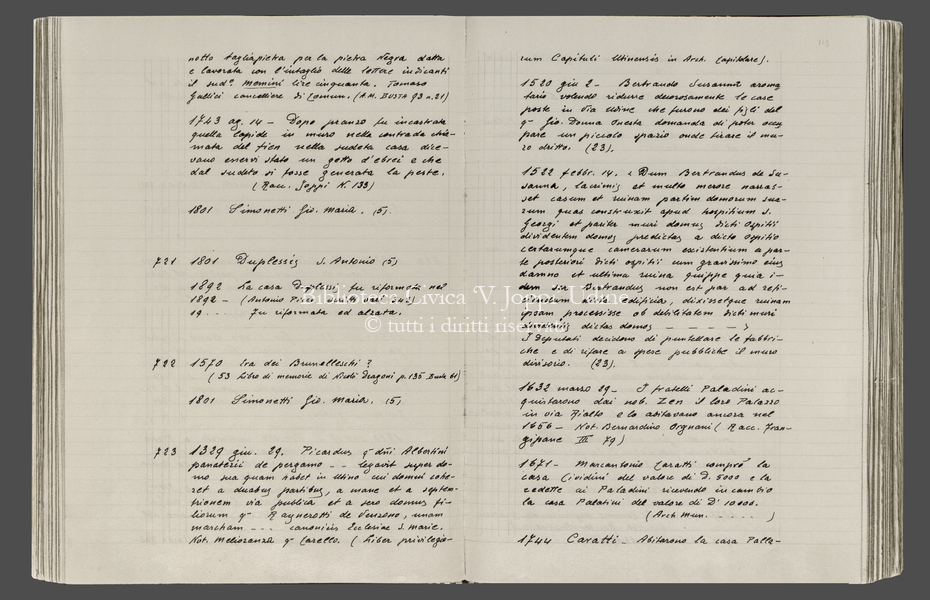 notto tagliapietra per la pietra negra datta
e lavorata con l'intaglio delle lettere indicanti
il sudº. Monini lire cinquanta. Tomaso
Gallici cancelliere di Comun. (A.M. Busta 93 n. 21)
1743 ag. 14 - Dopo pranzo fu incastrata
quella lapide in muro nella contrada chia-
mata del fien nella sudeta casa dice-
vano esservi stato un getto d'ebrei e che
dal sudeto si fosse generata la peste.
(Racc. Joppi N. 133)
1801 Simonetti Gio. Maria. (5).
721 1801 Duplessis S. Antonio (5)
1892 La casa Duplessis fu riformata nel
1892 - (Antonio
19... Fu riformata ed alzata.
722 1570 Era dei Brunelleschi?
(53 Libro di memorie di Nicolò Dragoni p. 135 Busta 61)
1801 Simonetti Gio. Maria. (5)
723 1329 giu. 29. Picardus q. dñi Albertini
panaterii de pergamo -- legavit super do-
mo sua quam habet in Utino cui domui cohe-
ret a duabus partibus, a mane et a septen-
trionem via publica et a sero domus fi-
liorum q. Raynerotti de Venzono, unam
marcham --- canonicis Ecclesiae S. Marie.
Not. Melioranza q. Carello. (Liber privilegio-
rum Capituli Utinensis in Arch. Capitolare).
1520 giu 2 - Bertrando Susanna aroma
tario volendo ridurre decorosamente le case
poste in via Udine che furono dei figli del
q. Gio. Donna Onesta domanda di poter occu
pare un piccolo spazio onde tirare il mu-
ro dritto. (23).
1522 febbr. 14. « Dum Bertrandus de Su-
sanna, lacrimis et multo merore narras-
set casum et ruinam partim domorum sua-
rum quas construxit apud hospitium S.
Georgi et pariter muri domus dicti ospitii
dividentem domos predictas a dicto ospitio
certarumque camerarum existentium a par-
te posteriori dicti ospitii cum gravissimo eius
damno et ultima ruina quippe quia i-
dem ser Bertrandus non est par ad refi-
ciendum tanta edificia, dixissetque ruinam
ipsam processisse ob debilitatem dicti muri
dividentis dictas domos - - - - - »
I Deputati decidono di puntellare le fabbri-
che e di rifare a spese pubbliche il muro
divisorio. (23).
1632 marzo 29 - I fratelli Paladini ac-
quistarono dai nob. Zen il loro Palazzo
in via Rialto e lo abitavano ancora nel
1656 - Not. Bernardino Orgnani (Racc. Fran-
gipane III 79)
1671 - Marcantonio Caratti comprò la
casa Cividini del valore di D. 5000 e la
cedette ai Paladini ricevendo in cambio
la casa Palatini del valore di Dⁱ 10000.
(Arch. Mun. - - - - - )
1744 Caratti - Abitarono la casa Palla-
Biblioteca Civica 'V. Joppi' Udine
© tutti i diritti riservati